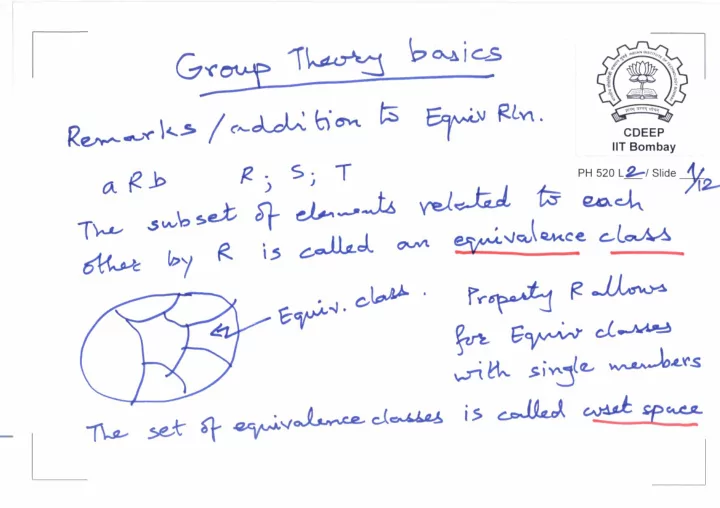 Group Theory basics
CDEEP
IIT Bombay
PH 520 L 2 / Slide 1/12
Remarks / addition to Equiv Rln.
a R b R ; S ; T
The subset of elements related to each
other by R is called an equivalence class
Equiv. class .
Property R allows
for Equiv classes
with single members
The set of equivalence classes is called coset space